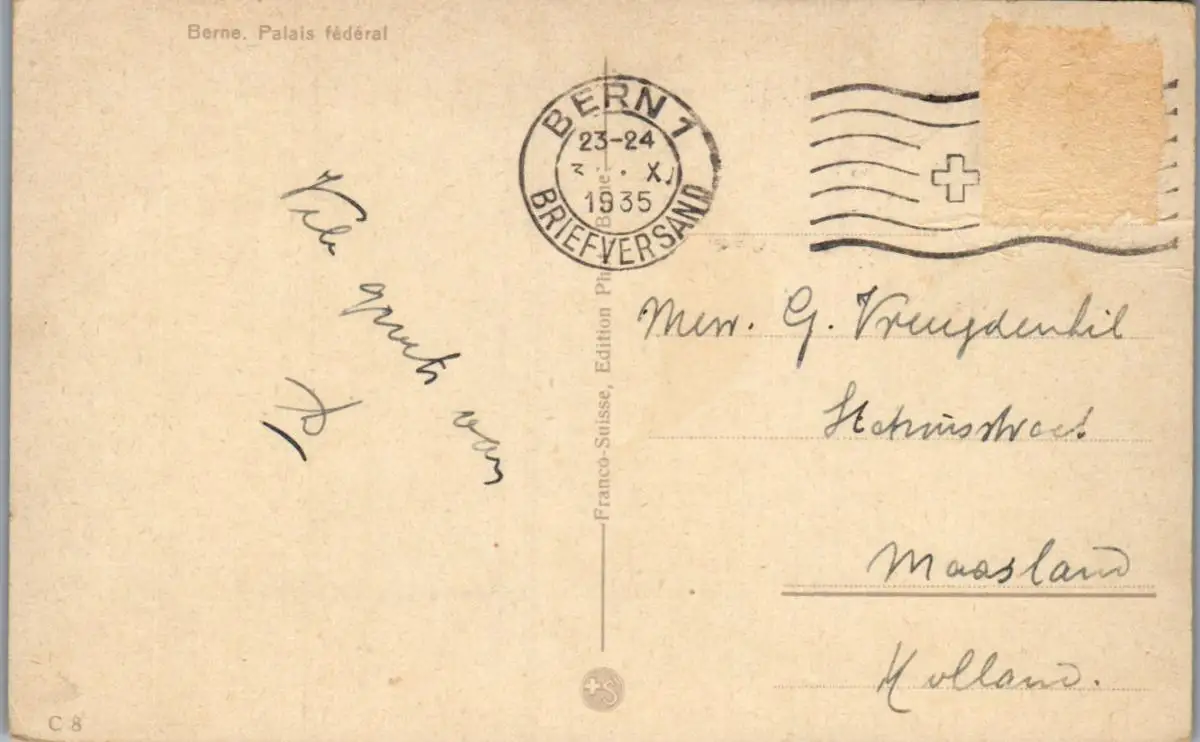 Berne. Palais fédéral
BERN 1
23-24
XI
1935
BRIEFVERSAND
Vele groeten van
Franco-Suisse, Edition Ph Berne
Mevr. G. Vreugdenhil
Maasland
Holland.
C 8